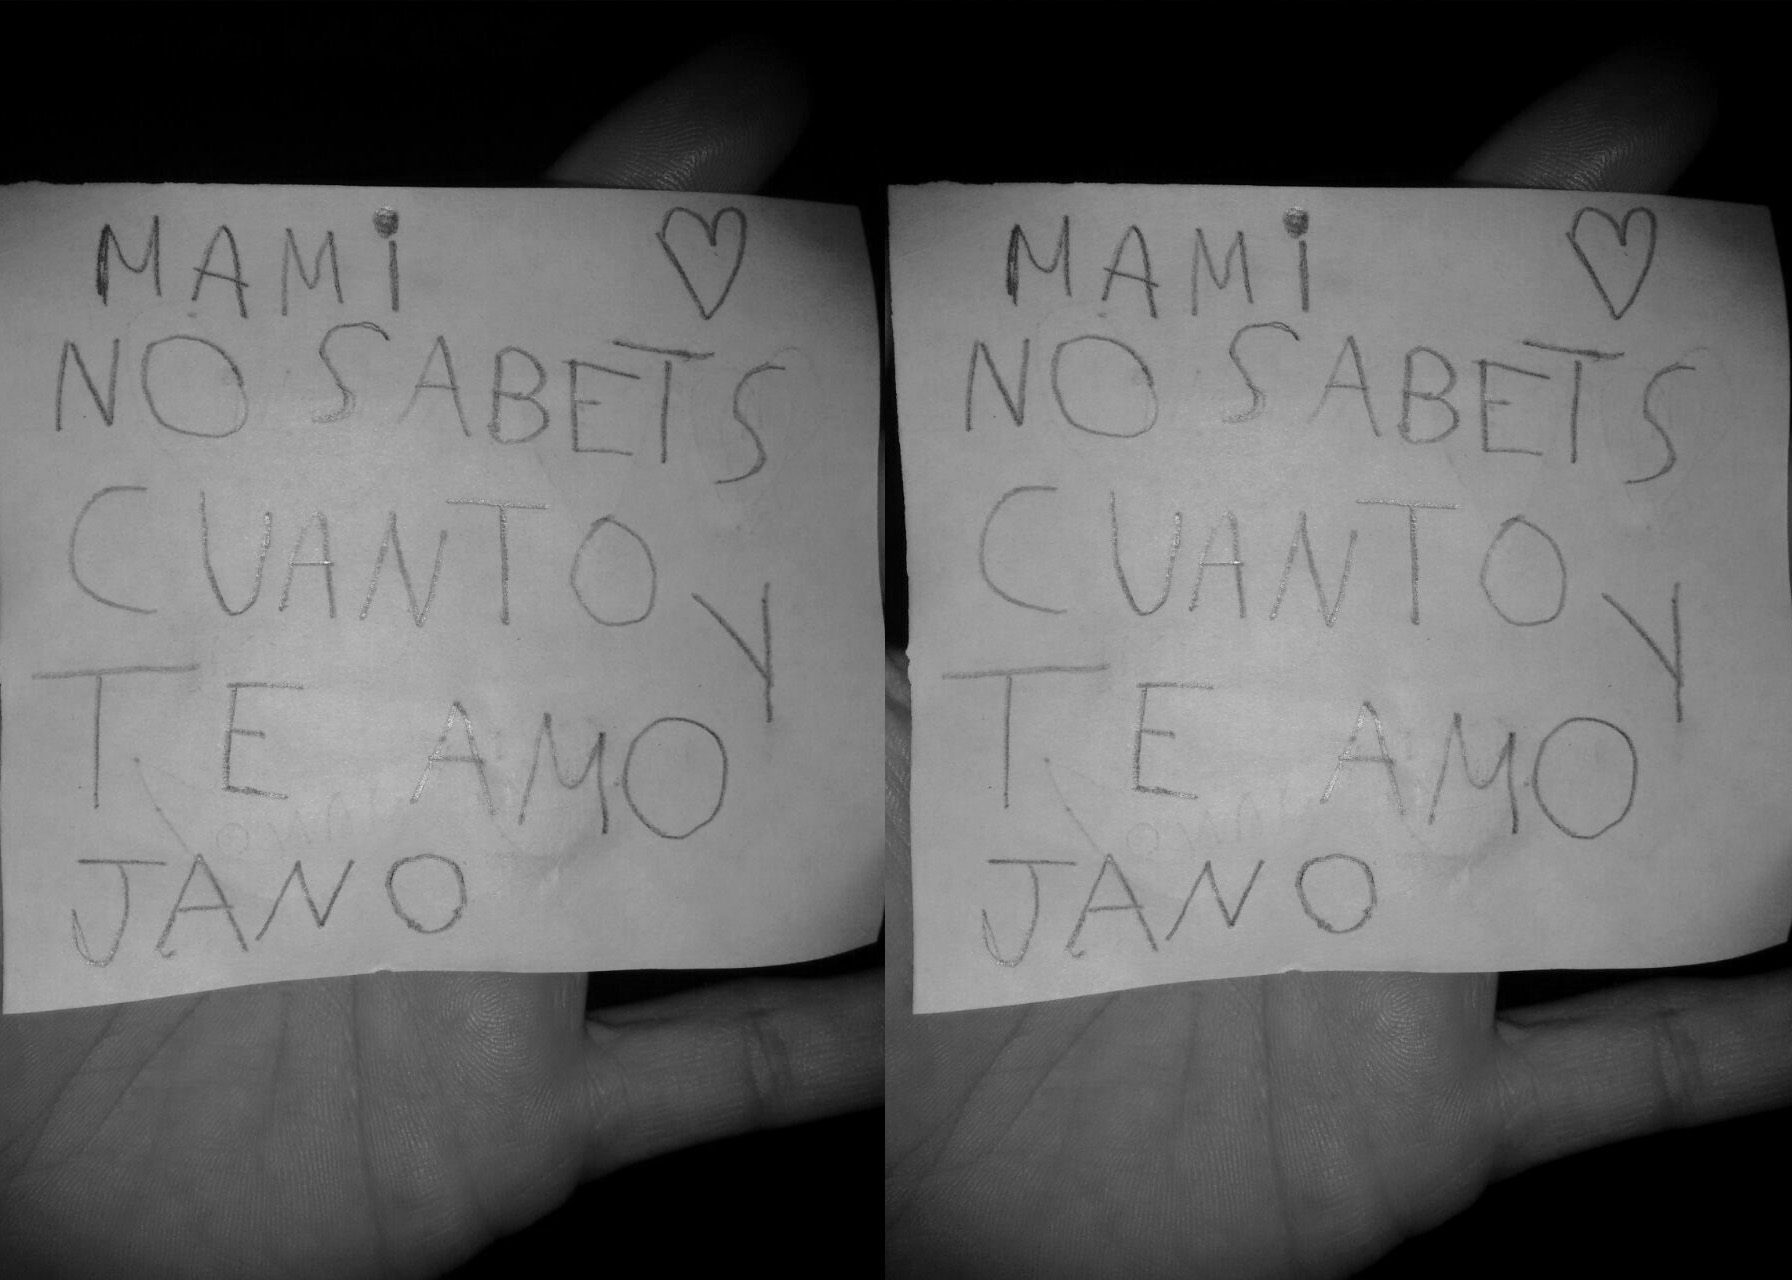 MAMi ♡
NO SABETS
CUANTO Y
TE AMO
JANO
MAMi ♡
NO SABETS
CUANTO Y
TE AMO
JANO